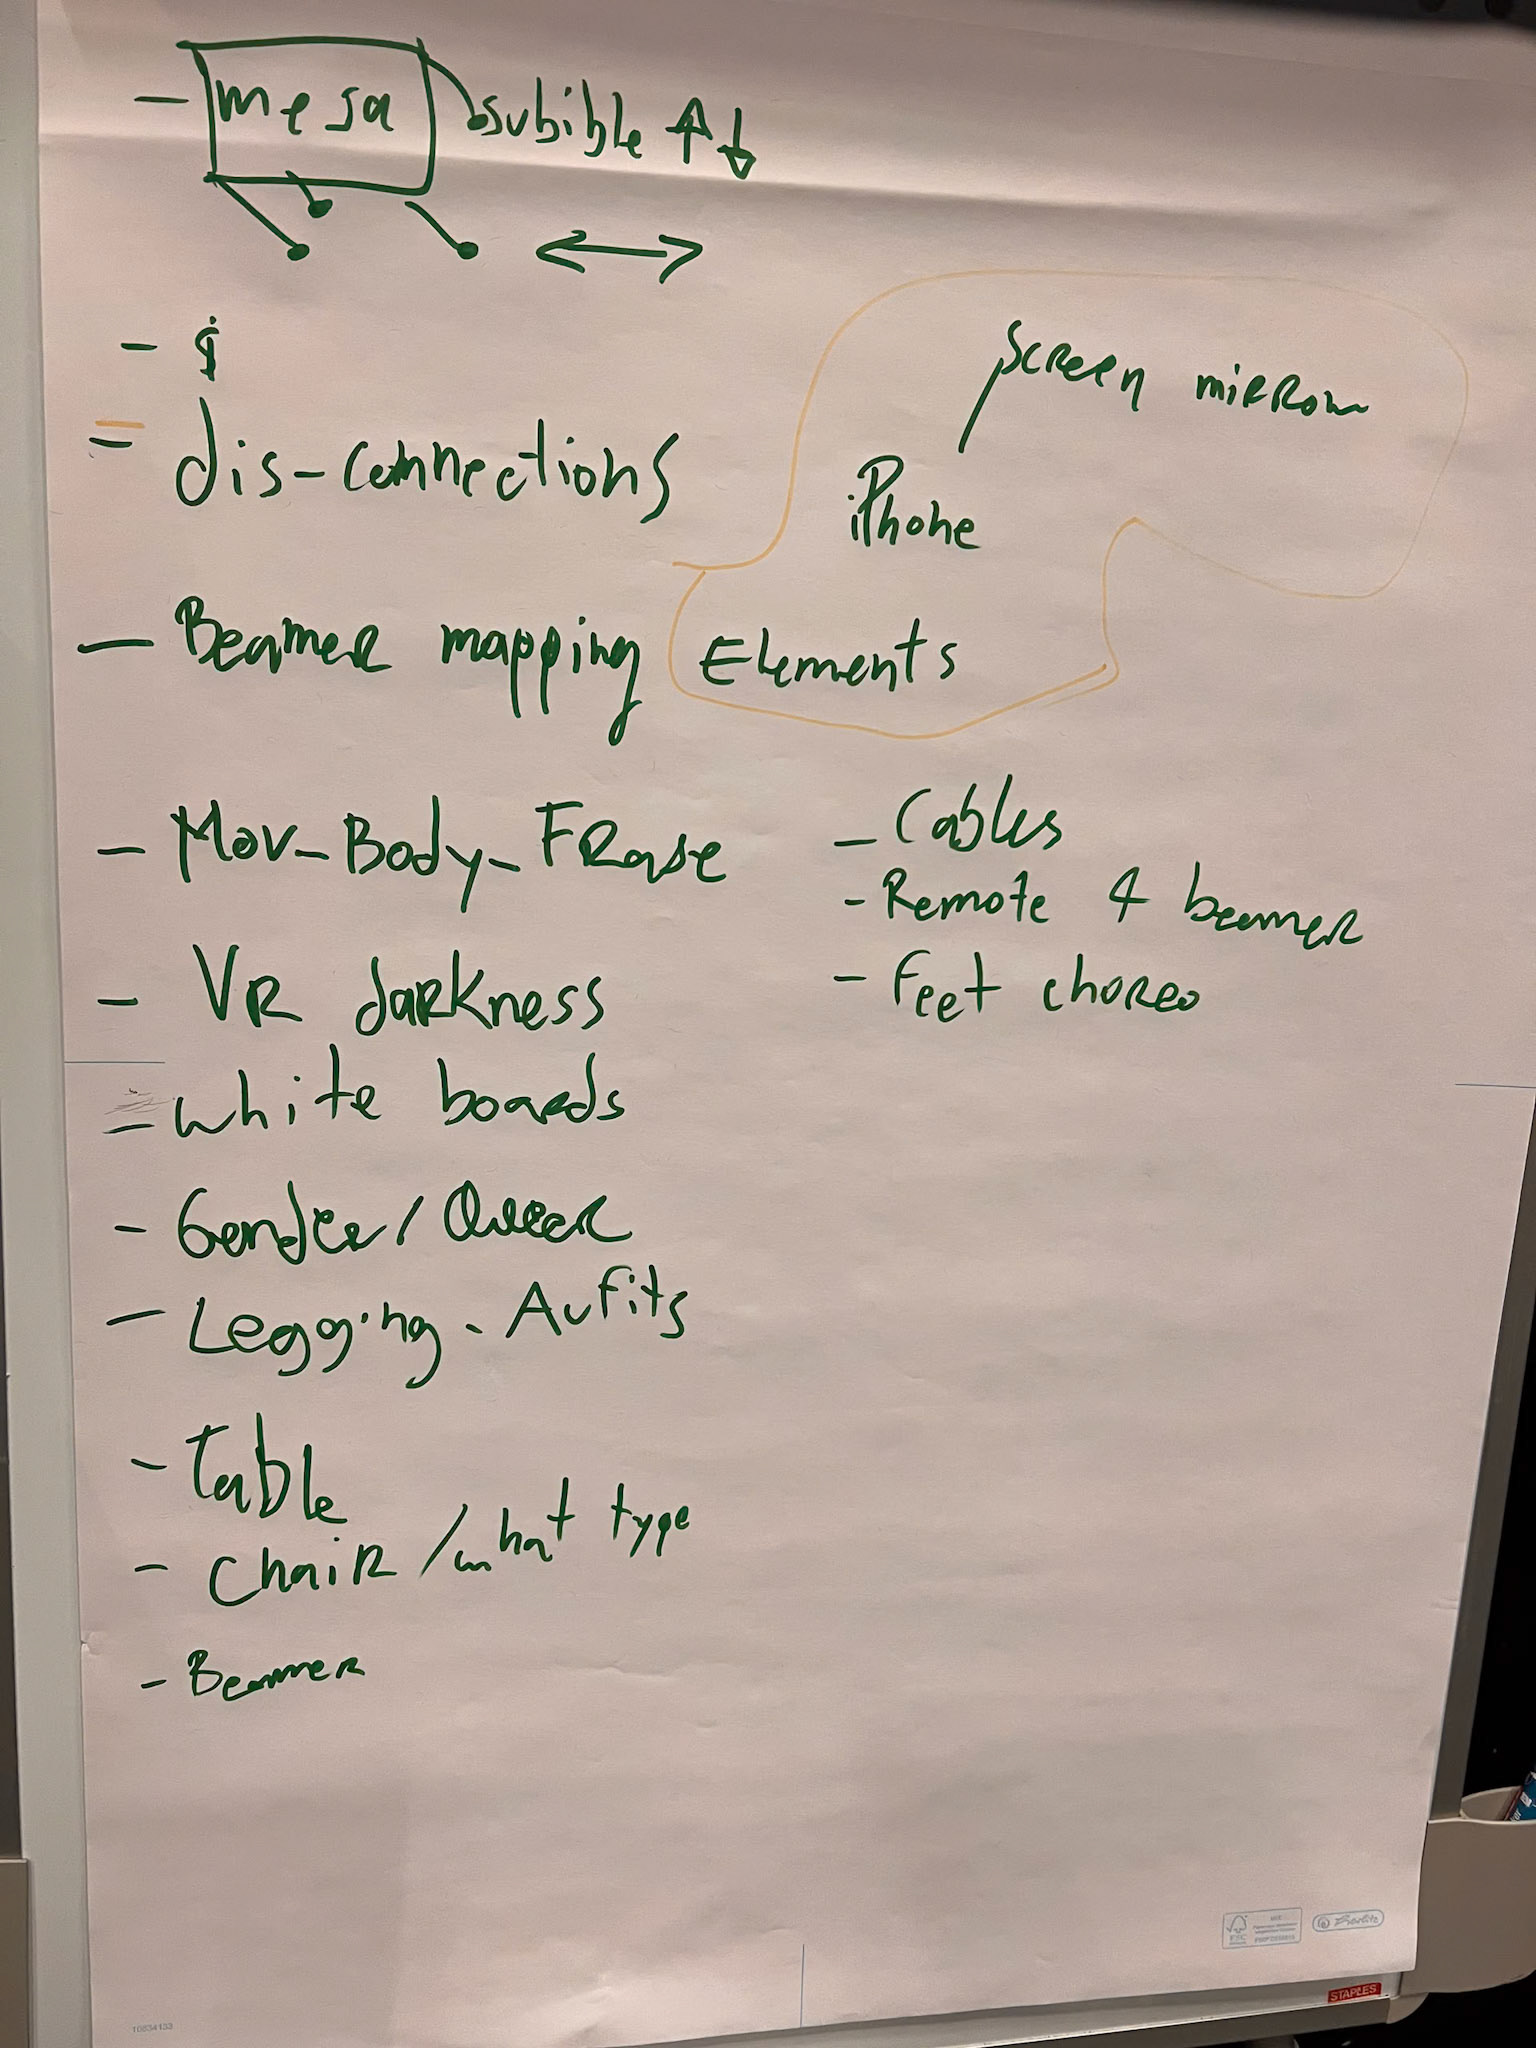 - mesa subible ↑↓
↔
- $
- dis-connections
screen mirrow
iPhone
- Beamer mapping Elements
- Mov-Body-Frase
- Cables
- Remote 4 beamer
- Feet choreo
- VR darkness
- white boards
- Gender/Queer
- Legging - Aufits
- Table
- Chair / what type
- Beamer
FSC
STAPLES
10534133